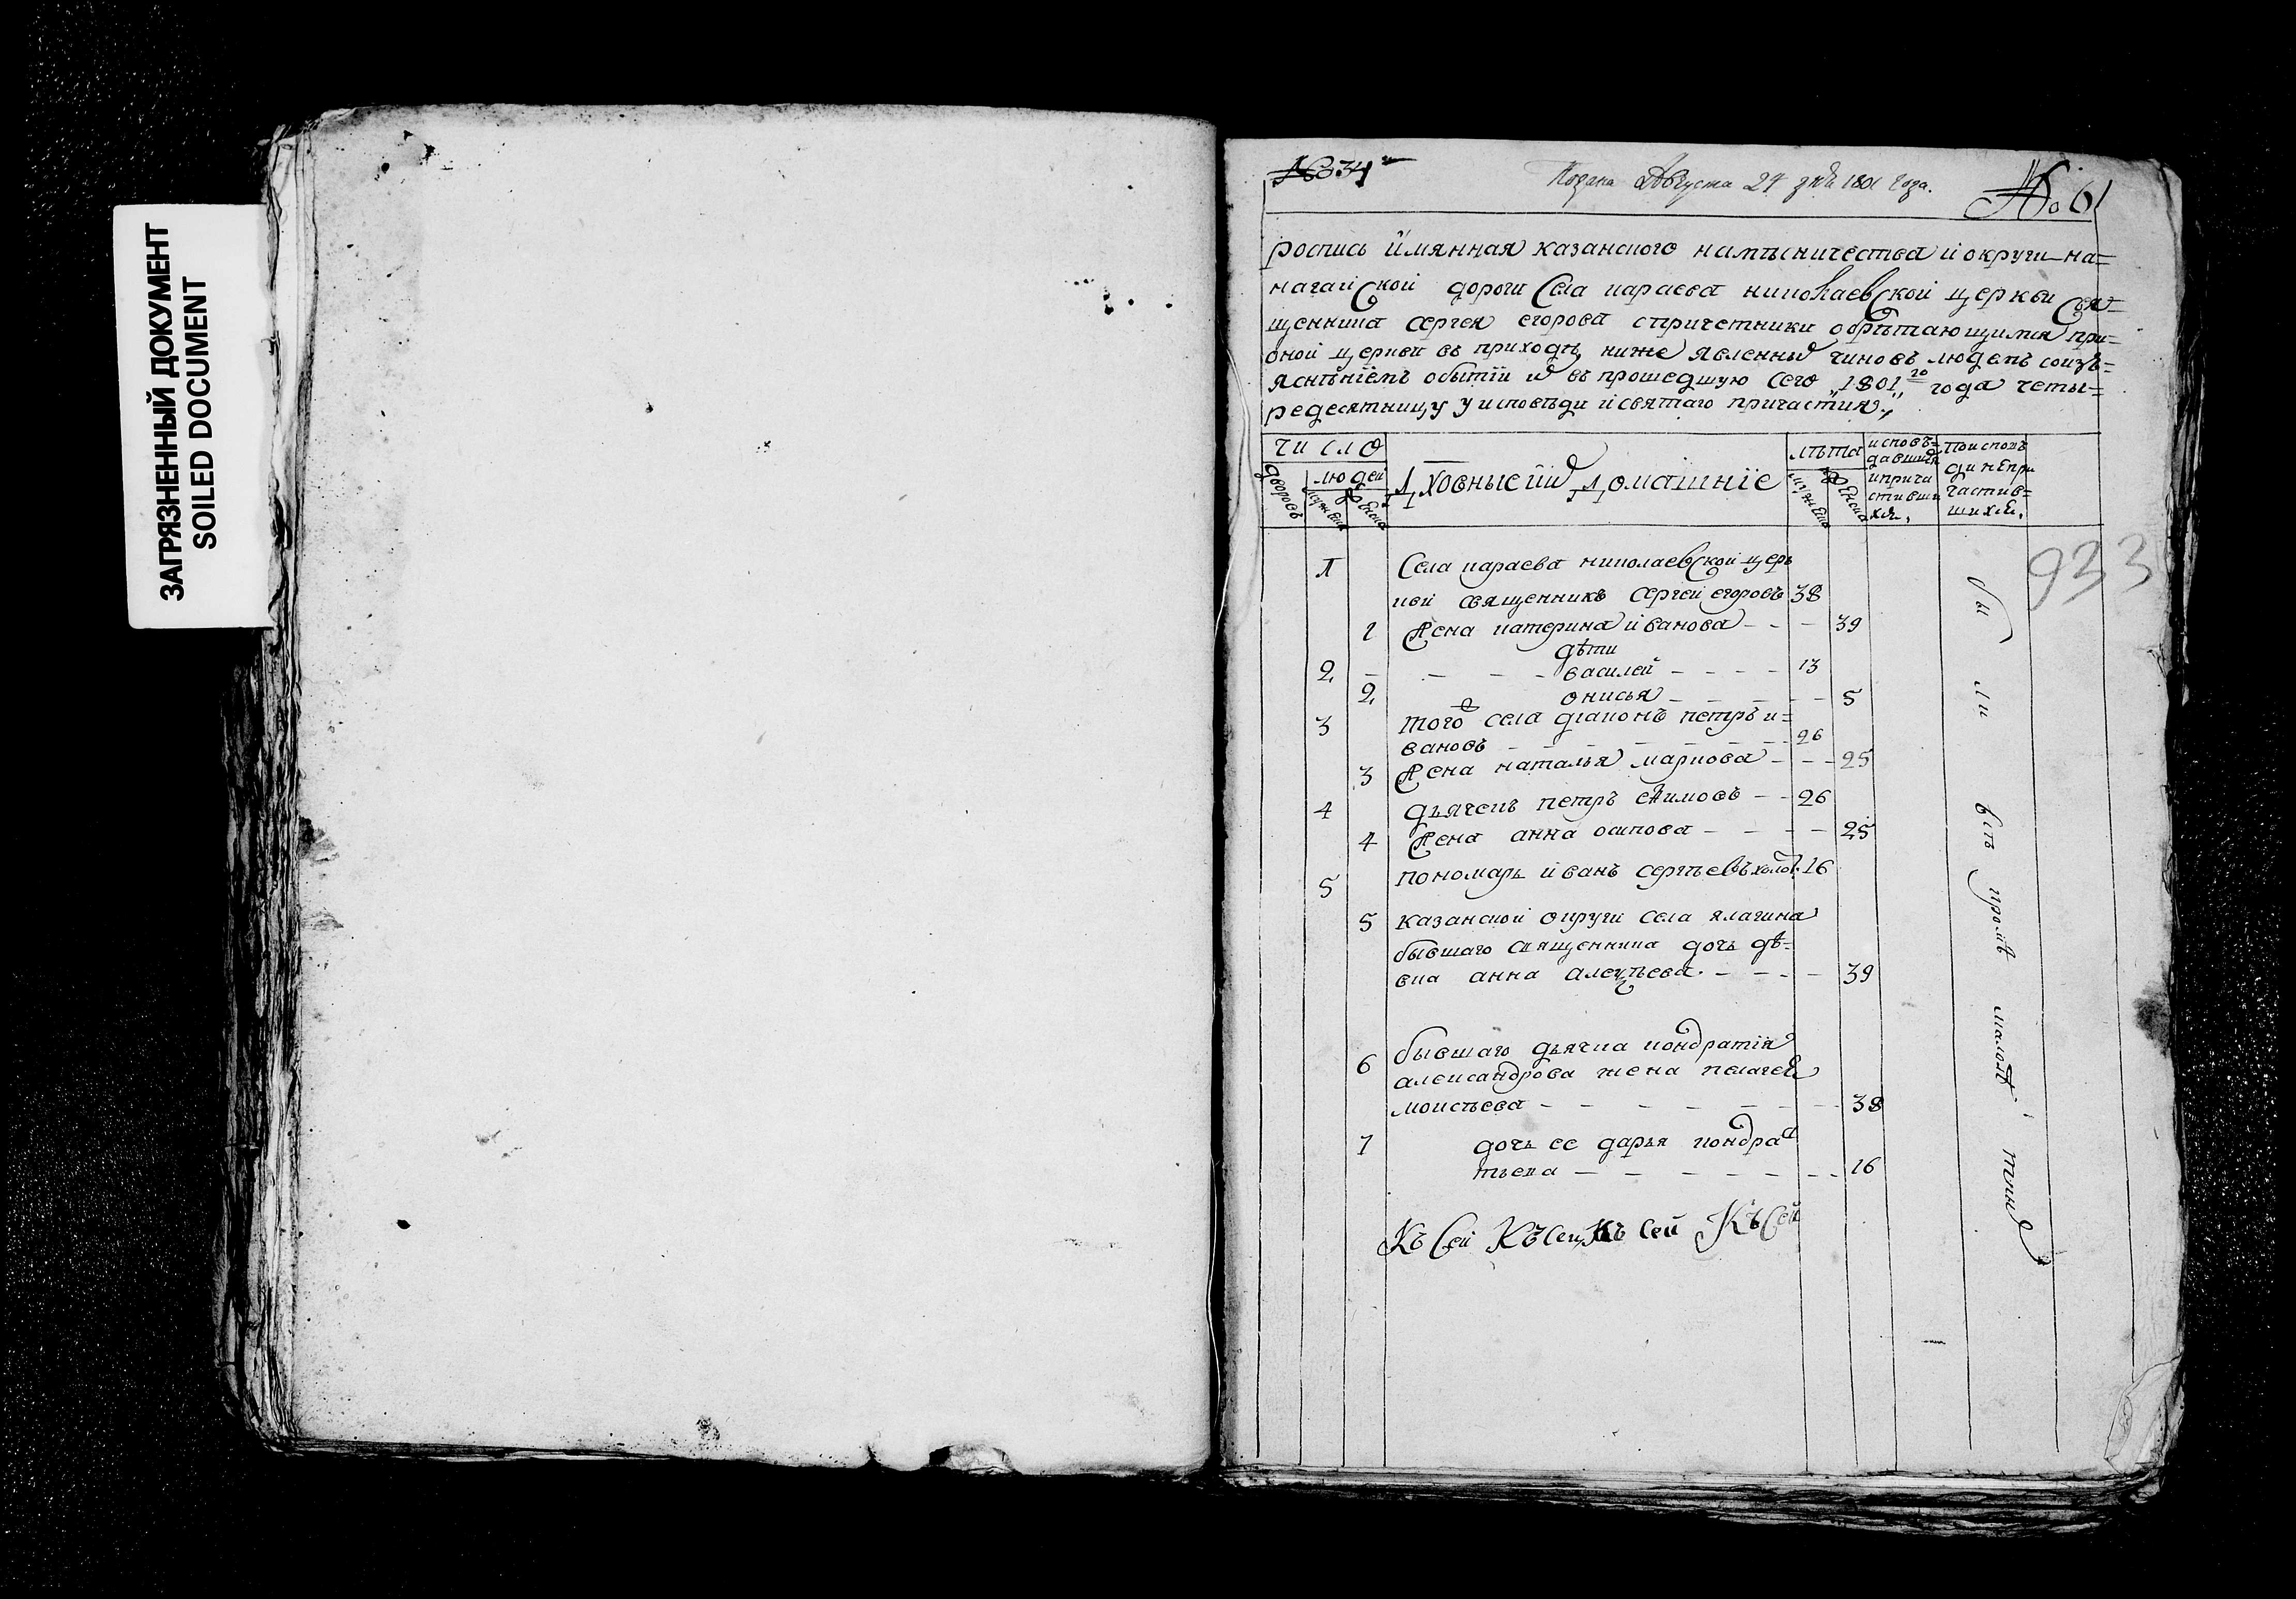 ЗАГРЯЗНЕННЫЙ ДОКУМЕНТ
SOILED DOCUMENT
№ 34
Подана Августа 27 дня 1801 года.
№ 61
роспись имянная казанского намѣсничества и округи на=
нагайской дороги Села караева николаевской церкви Свя=
щенника сергея егорова спричетники обрѣтающимся при=
оной церкви въ приходѣ, ниже явленныѣ чиновъ людемъ соизъ=
яснѣніемъ о бытіи и въ прошедшую сего „1801„ го года четы=
редесятницу у исповѣди и святаго причастия„
число
дворовъ
людей
мужеска
Женска
Духовные ии домашніе
лѣта
мужеска
Женска
исповѣ=
давшияся
и прича
стивши
хся.
По испов
ди непри
частив=
шихся.
933
1 Села караева николаевской церк
кви священникъ сергей егоровъ 38
1 Жена катерина иванова - - - 39
дѣти
2 - - - - василей - - - - 13
2 онисья - - - - - 5
3 того села диаконъ петръ и=
вановъ - - - - - - - 26
3 Жена наталья маркова - - - 25
4 дьячекъ петръ ефимовъ - - 26
4 Жена анна осипова - - - - 25
5 пономарь иванъ сергѣевъ холос. 16
5 казанской округи села ялагина
бывшаго священника дочь дѣ=
вка анна алексѣева. - - - - 39
6 бывшаго дьячка кондратія
александрова жена пелагея
моисѣева - - - - - - - 38
7 дочь ее дарья кондра
тьева - - - - - - 16
Къ Сей Къ Сей Къ Сей Къ Сей
бы ли всѣ проме малолѣт